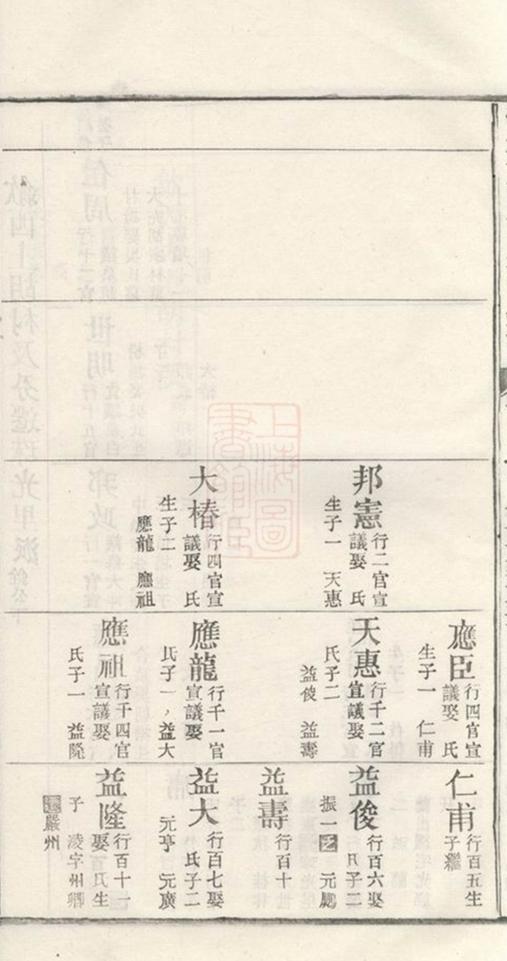 邦憲
行二官宣
議娶 氏
生子一 天惠
大椿
行四官宣
議娶 氏
生子二
應龍 應祖
應臣
行四官宣
議娶 氏
生子一 仁甫
天惠
行千二官
宣議娶
氏子二
益俊 益壽
應龍
行千一官
宣議娶
氏子一 益大
應祖
行千四官
宣議娶
氏子一 益隆
仁甫
行百五生
子繼
益俊
行百六娶
氏子二
振一 元鵬
益壽
行百十
益大
行百七娶
氏子二
元亨 元廣
益隆
行百十一
娶 氏生
子 淩字州卿
遷嚴州
上海圖書館藏